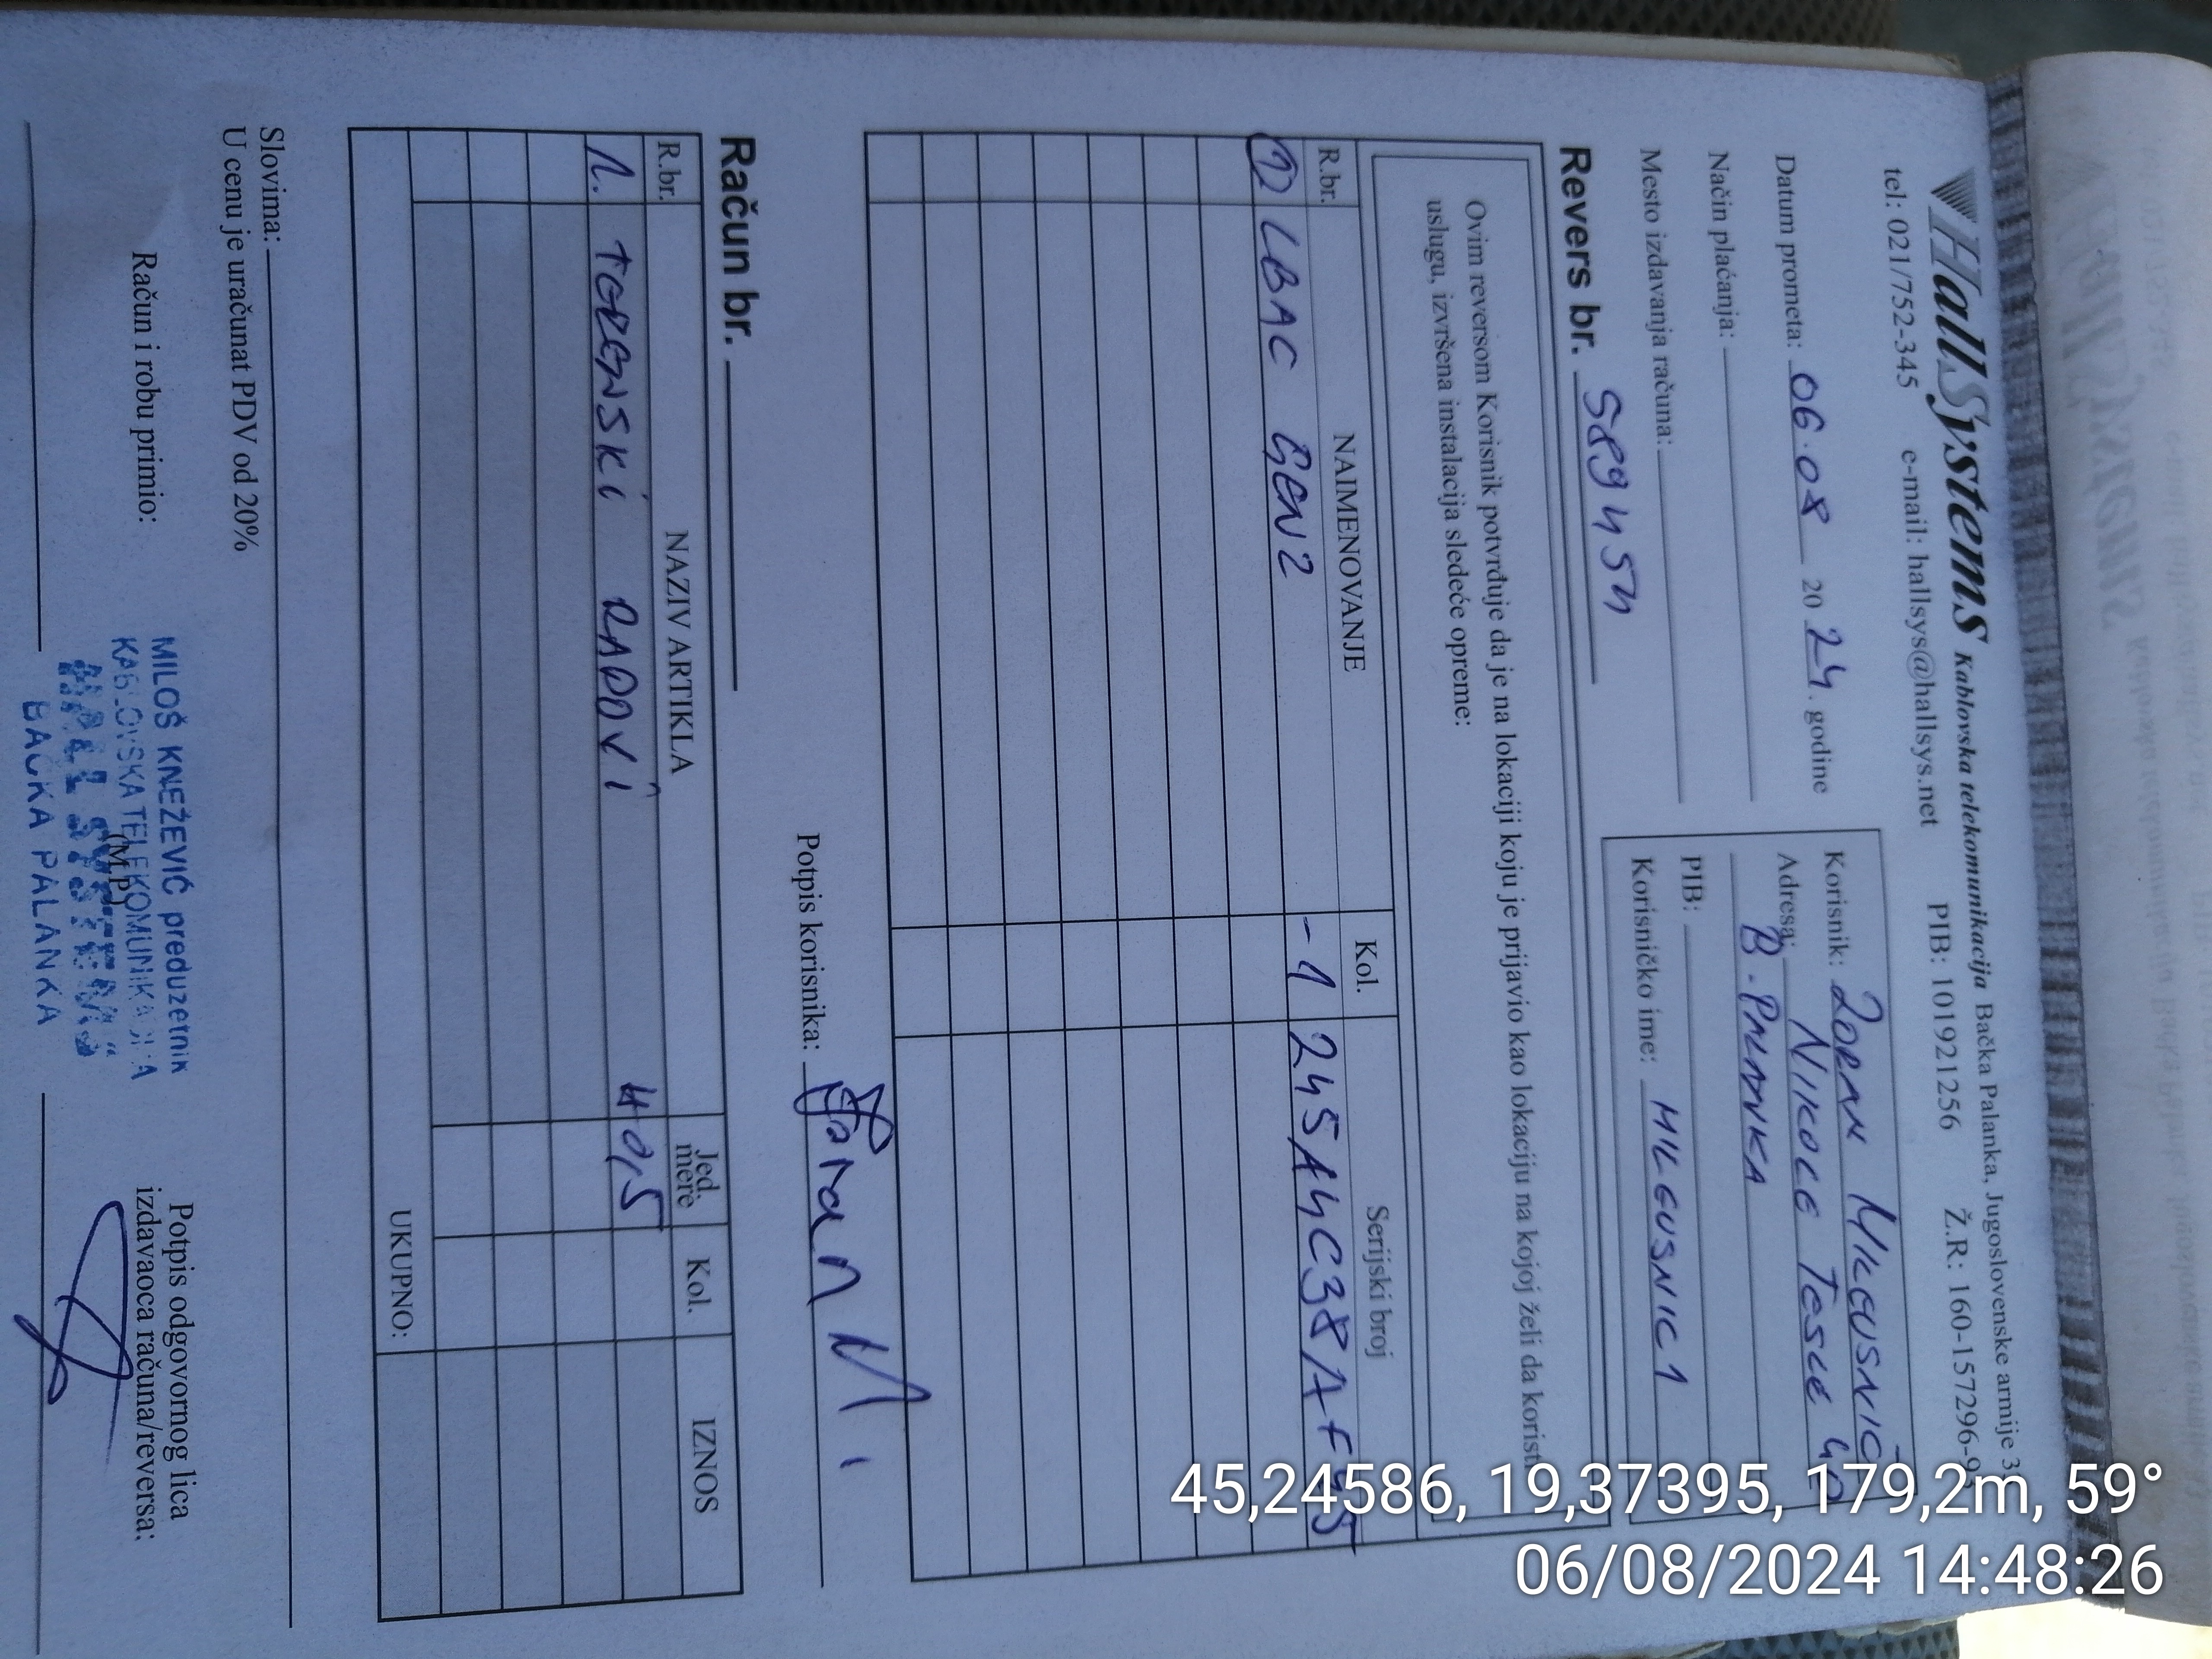 HallSystems Kablovska telekomunikacija Bačka Palanka, Jugoslovenske armije 3
tel: 021/752-345 e-mail: hallsys@hallsys.net PIB: 101921256 Ž.R.: 160-157296-9
Datum prometa: 06.08 20 24. godine
Način plaćanja:
Mesto izdavanja računa:
Korisnik: ZORAN MILEUSNIĆ
Adresa: NIKOLE TESLE
B. PALANKA
PIB:
Korisničko ime: MILEUSNIC1
Revers br. 589454
Ovim reversom Korisnik potvrđuje da je na lokaciji koju je prijavio kao lokaciju na kojoj želi da koristi
uslugu, izvršena instalacija sledeće opreme:
R.br. NAIMENOVANJE Kol. Serijski broj
1 LBAC GEN2 -1 245A4C38/AF45
Potpis korisnika: Zoran M
Račun br.
R.br. NAZIV ARTIKLA Jed. mere Kol. IZNOS
1. TERENSKI RADOVI H 0,5
UKUPNO:
Slovima:
U cenu je uračunat PDV od 20%
Račun i robu primio:
(M.P.)
Potpis odgovornog lica
izdavaoca računa/reversa:
MILOŠ KNEŽEVIĆ preduzetnik
KABLOVSKA TELEKOMUNIKACIJA
"HALL SYSTEMS"
BAČKA PALANKA
45,24586, 19,37395, 179,2m, 59°
06/08/2024 14:48:26